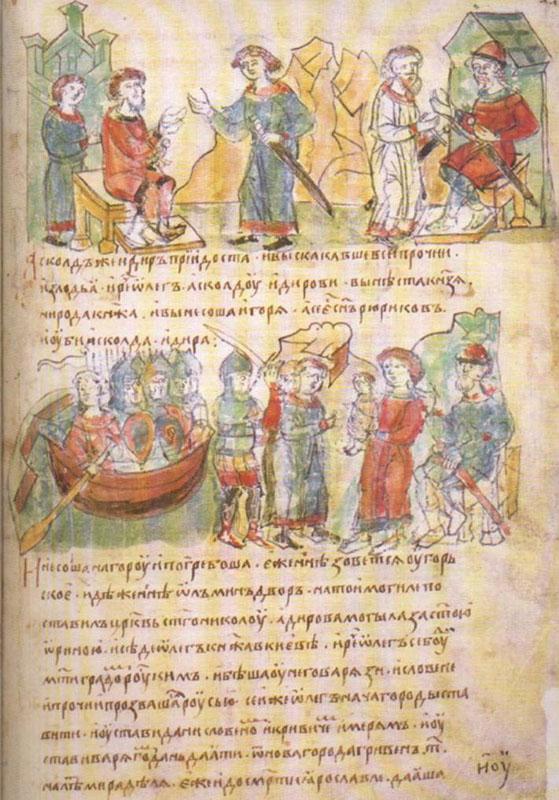 Асколдъ же и диръ придоста · и выскакавше вси прочии
из лодьи · и рече ѡлегъ асколдоу и дирови · вы нѣста кнѧзѧ ·
ни рода кнѧжа · и вынесоша игорѧ · а се есть снъ рюриковъ ·
и оубиша асколда · и дира ·
И несоша на гороу и погребоша · еже нынѣ зоветсѧ оугорь
ское · идѣже нынѣ ѡлъминъ дворъ · на тои могиле по
ставилъ црквь стго николоу · а дирова могыла за стою
ѡриною · и сѣде ѡлегъ кнѧжа в киевѣ · и рече ѡлегъ се боуди
мти градом роускимъ · и бѣша оу него варѧзи · и словене
и прочии прозвашасѧ роусью · сеи же ѡлегъ нача городы ста
вити · и оустави дани словеномъ и кривичемъ и мерѧмъ · и оу
стави варѧгомъ дань даꙗти · ѿ новагорода гривенъ т҃
на лѣт мира дѣлѧ · еже и до смрти ꙗрославлѧ даꙗша